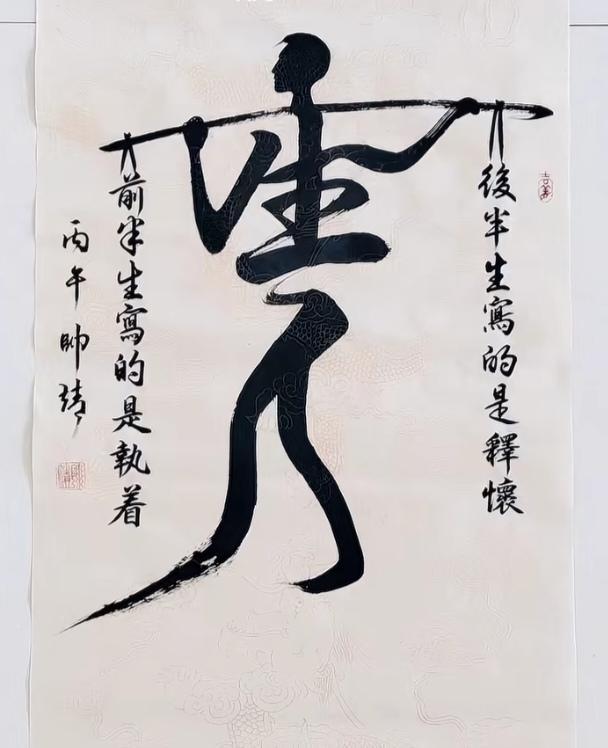 人生
前半生寫的是執着
後半生寫的是釋懷
丙午帥